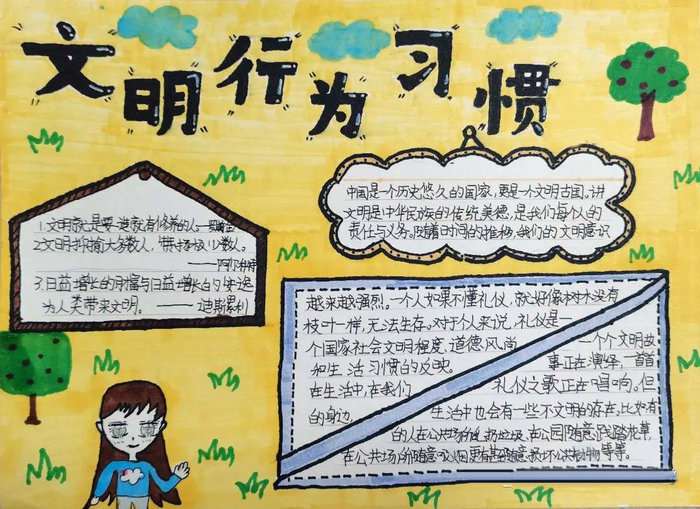 文明行为习惯
1.文明就是要造就有修养的人
2.文明排挤大多数人,
——阿尔科特
3.日益增长的财富与日益增长的安逸
为人类带来文明。——迪斯累利
中国是一个历史悠久的国家,更是一个文明古国。讲
文明是中华民族的传统美德,是我们每个人的
责任与义务。随着时间的推移,我们的文明意识
越来越强烈。一个人如果不懂礼仪,就好像树木没有
枝叶一样,无法生存。对于个人来说,礼仪是一
个国家社会文明程度、道德风尚
和生活习惯的反映。
在生活中,在我们
的身边,
一个个文明故
事正在演绎,一首首
礼仪之歌正在唱响。但
生活中也会有一些不文明的存在,比如有
的人在公共场所乱扔垃圾,在公园随意踩踏花草,
在公共场所随意 更有甚至随意 坏公共 物等等。